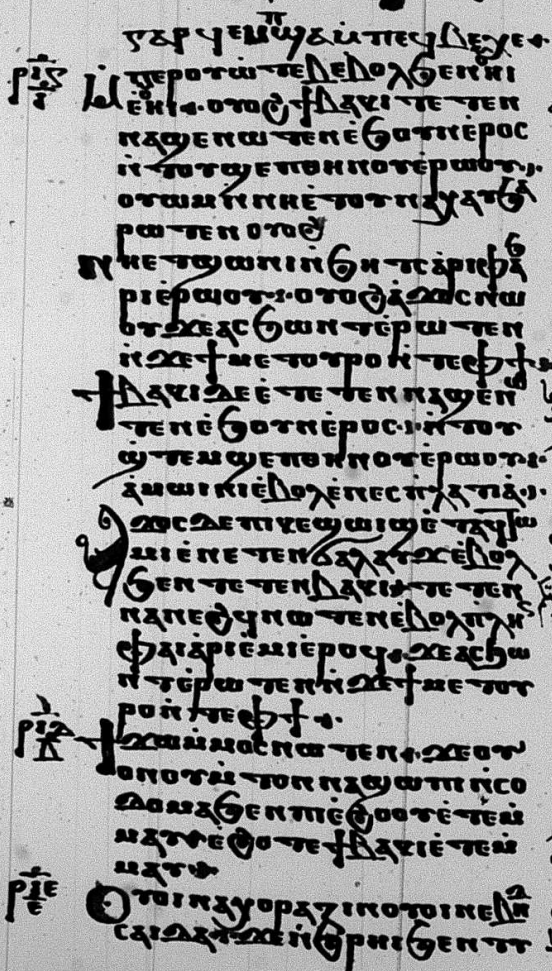 ⲅⲁⲣ ϥⲉⲙⲡϣⲁ ⲙⲡⲉϥⲃⲉⲭⲉ
ⲙⲡⲉⲣⲟⲩⲱⲧⲉⲃ ⲉⲃⲟⲗ ϧⲉⲛ ⲏⲓ
ⲉⲏⲓ ⲟⲩⲟϩ ϯⲃⲁⲕⲓ ⲉⲧⲉⲧⲉⲛ
ⲛⲁϣⲉⲛⲱⲧⲉⲛ ⲉϧⲟⲩⲛ ⲉⲣⲟⲥ
ⲛⲧⲟⲩϣⲉⲡ ⲑⲏⲛⲟⲩ ⲉⲣⲱⲟⲩ
ⲟⲩⲱⲙ ⲛⲛⲏ ⲉⲧⲟⲩⲛⲁⲭⲁⲩ ϧⲁ
ⲣⲱⲧⲉⲛ ⲟⲩⲟϩ
ⲛⲏ ⲉⲧϣⲱⲛⲓ ⲛϧⲏⲧⲥ ⲁⲣⲓⲫⲁϧ
ⲣⲓ ⲉⲣⲱⲟⲩ ⲟⲩⲟϩ ⲁϫⲟⲥ ⲛⲱ
ⲟⲩ ϫⲉ ⲁⲥϧⲱⲛⲧ ⲉⲣⲱⲧⲉⲛ
ⲛϫⲉ ϯⲙⲉⲧⲟⲩⲣⲟ ⲛⲧⲉ ⲫϯ
ϯⲃⲁⲕⲓ ⲇⲉ ⲉⲧⲉⲧⲉⲛⲛⲁϣⲉⲛⲱ
ⲧⲉⲛ ⲉϧⲟⲩⲛ ⲉⲣⲟⲥ ⲛⲧⲟⲩ
ϣⲧⲉⲙϣⲉⲡ ⲑⲏⲛⲟⲩ ⲉⲣⲱⲟⲩ
ⲁⲙⲱⲓⲛⲓ ⲉⲃⲟⲗ ⲉⲛⲉⲥⲡⲗⲁⲧⲓⲁ
ⲁϫⲟⲥ ϫⲉ ⲡⲓⲕⲉϣⲱⲓϣ ⲉⲧⲁϥⲧⲱ
ⲙⲓ ⲉⲛⲉⲛϭⲁⲗⲁⲩϫ ⲉⲃⲟⲗ
ϧⲉⲛ ⲧⲉⲧⲉⲛⲃⲁⲕⲓ ⲧⲉⲛ
ⲛⲁⲛⲉϩϥ ⲛⲱⲧⲉⲛ ⲉⲃⲟⲗ ⲡⲗⲏⲛ
ⲫⲁⲓ ⲁⲣⲓⲉⲙⲓ ⲉⲣⲟϥ ϫⲉ ⲁⲥϧⲱ
ⲛⲧ ⲉⲣⲱⲧⲉⲛ ⲛϫⲉ ϯⲙⲉⲧⲟⲩ
ⲣⲟ ⲛⲧⲉ ⲫϯ
ⲣⲓⲇ ϯϫⲱ ⲙⲙⲟⲥ ⲛⲱⲧⲉⲛ ϫⲉ ⲟⲩ
ⲟⲛ ⲟⲩⲙⲧⲟⲛ ⲛⲁϣⲱⲡⲓ ⲛⲥⲟ
ⲇⲟⲙⲁ ϧⲉⲛ ⲡⲓⲉϩⲟⲟⲩ ⲉⲧⲉⲙ
ⲙⲁⲩ ⲉϩⲟⲧⲉ ϯⲃⲁⲕⲓ ⲉⲧⲉⲙ
ⲙⲁⲩ
ⲣⲓⲉ ⲟⲩⲟⲓ ⲛⲉ ⲭⲟⲣⲁⲍⲓⲛ ⲟⲩⲟⲓ ⲛⲉ ⲃⲏⲑ
ⲥⲁⲓⲇⲁ ϫⲉ ⲛϩⲣⲏⲓ ϧⲉⲛ